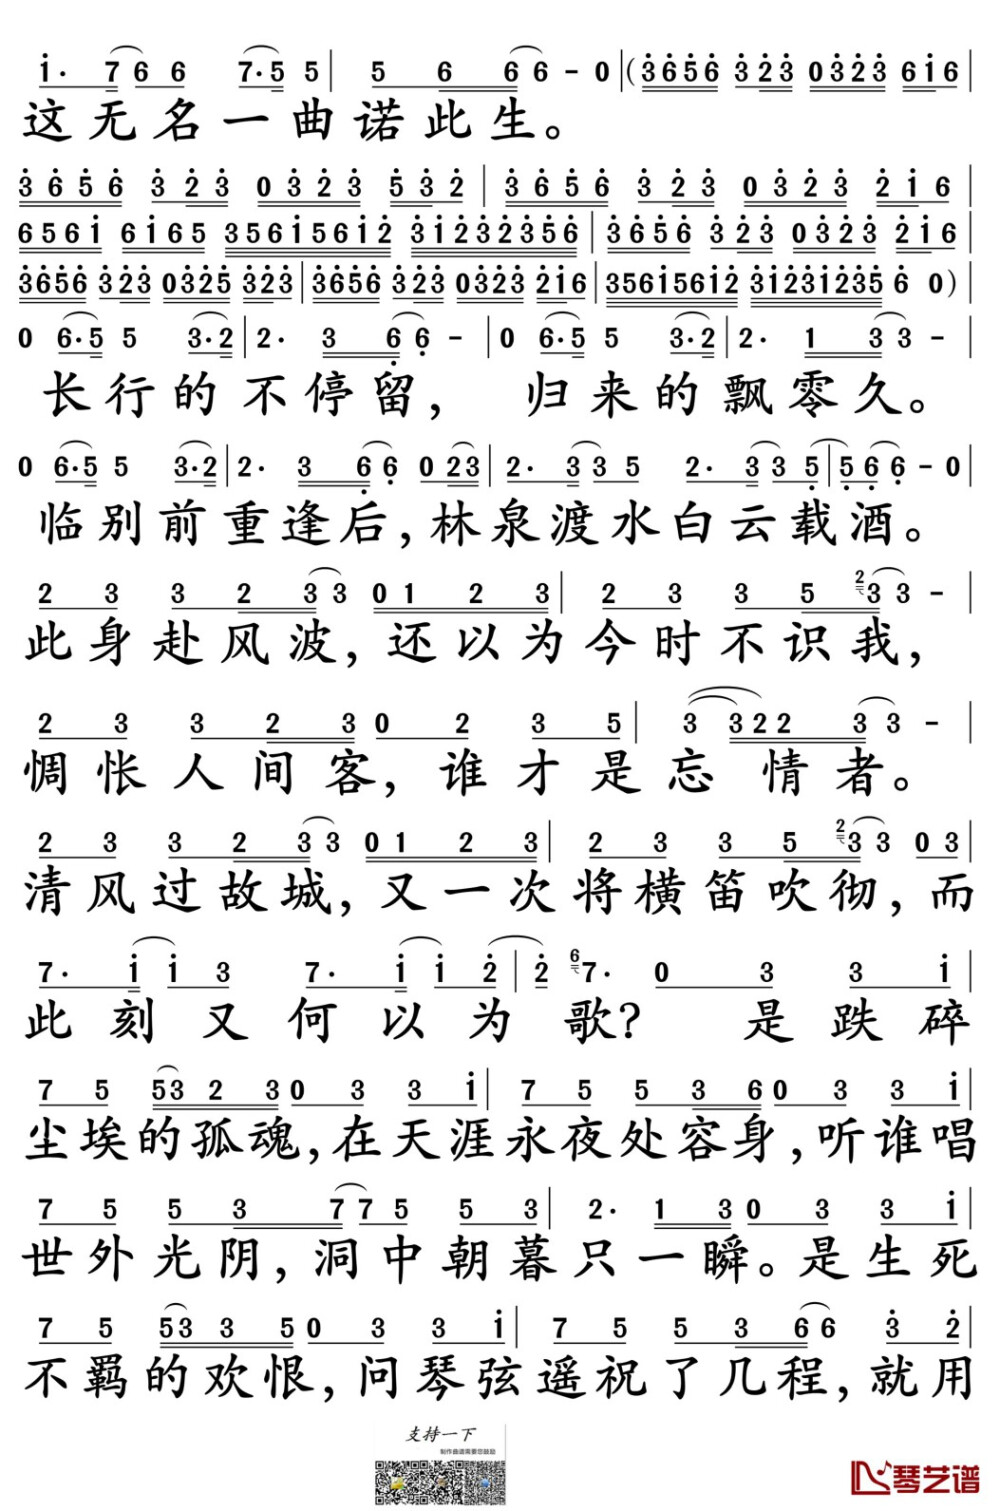 i· 7 6 6 7·5 5 | 5 6 6 6 - 0 | (3656 323 0323 6i6 |
这无名一曲诺此生。
3656 323 0323 532 | 3656 323 0323 2i6 |
656i 6i65 356i56i2 3i232356 | 3656 323 0323 2i6 |
3656 323 0325 323 | 3656 323 0323 2i6 | 356i56i2 3i23i235 6 0) |
0 6·5 5 3·2 | 2· 3 6 6 - | 0 6·5 5 3·2 | 2· 1 3 3 - |
长行的不停留, 归来的飘零久。
0 6·5 5 3·2 | 2· 3 6 6 0 23 | 2· 3 3 5 2· 3 3 5 | 5 6 6 - 0 |
临别前重逢后,林泉渡水白云载酒。
2 3 3 2 3 3 0 1 2 3 | 2 3 3 5 2 3 3 - |
此身赴风波,还以为今时不识我,
2 3 3 2 3 0 2 3 5 | 3 3 2 2 3 3 - |
惆怅人间客,谁才是忘情者。
2 3 3 2 3 3 0 1 2 3 | 2 3 3 5 2 3 3 0 3 |
清风过故城,又一次将横笛吹彻,而
7· i i 3 7· i i 2 | 2 6 7· 0 3 3 i |
此刻又何以为歌? 是跌碎
7 5 53 2 3 0 3 3 i | 7 5 5 3 6 0 3 3 i |
尘埃的孤魂,在天涯永夜处容身,听谁唱
7 5 5 3 7 7 5 5 3 | 2· 1 3 0 3 3 i |
世外光阴,洞中朝暮只一瞬。是生死
7 5 53 3 5 0 3 3 i | 7 5 5 3 6 6 3 2 |
不羁的欢恨,问琴弦遥祝了几程,就用
支持一下
制作曲谱需要您鼓励
琴艺谱